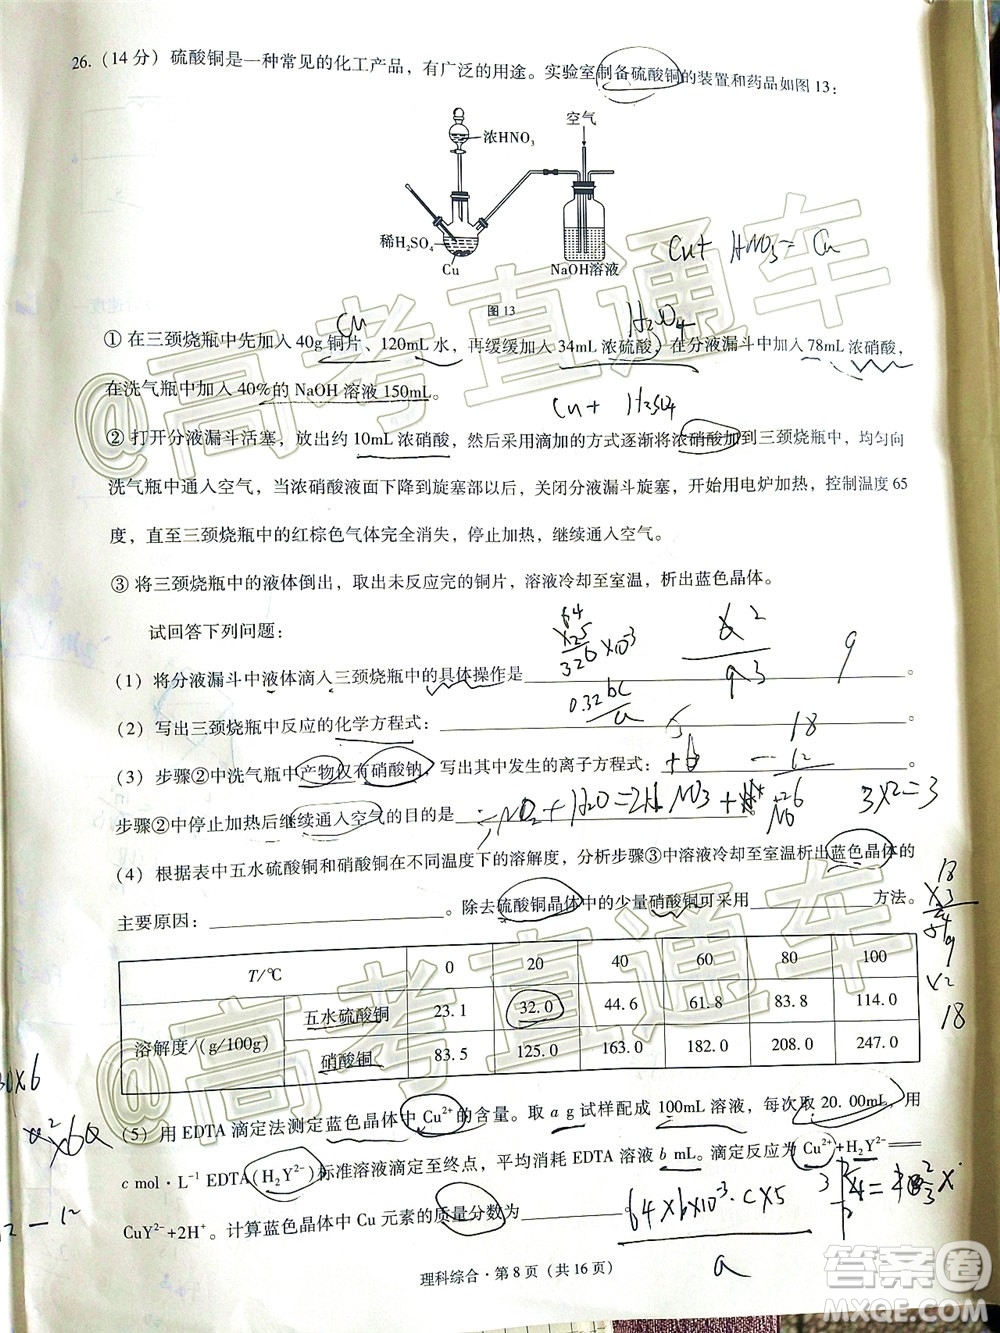 26.（14 分）硫酸铜是一种常见的化工产品，有广泛的用途。实验室制备硫酸铜的装置和药品如图 13：
空气
浓HNO₃
稀H₂SO₄
Cu
NaOH溶液
Cu+ HNO₃= Cu
图 13
Cu
H₂SO₄
① 在三颈烧瓶中先加入 40g 铜片、120mL 水，再缓缓加入 34mL 浓硫酸，在分液漏斗中加入 78mL 浓硝酸，
在洗气瓶中加入 40%的 NaOH 溶液 150mL。
Cu+ H₂SO₄
② 打开分液漏斗活塞，放出约 10mL 浓硝酸，然后采用滴加的方式逐渐将浓硝酸加到三颈烧瓶中，均匀向
洗气瓶中通入空气，当浓硝酸液面下降到旋塞部以后，关闭分液漏斗旋塞，开始用电炉加热，控制温度 65
度，直至三颈烧瓶中的红棕色气体完全消失，停止加热，继续通入空气。
③ 将三颈烧瓶中的液体倒出，取出未反应完的铜片，溶液冷却至室温，析出蓝色晶体。
试回答下列问题：
（1）将分液漏斗中液体滴入三颈烧瓶中的具体操作是。
（2）写出三颈烧瓶中反应的化学方程式：。
18
（3）步骤②中洗气瓶中产物仅有硝酸钠，写出其中发生的离子方程式：
步骤②中停止加热后继续通入空气的目的是
3×2=3
（4）根据表中五水硫酸铜和硝酸铜在不同温度下的溶解度，分析步骤③中溶液冷却至室温析出蓝色晶体的
主要原因：。除去硫酸铜晶体中的少量硝酸铜可采用方法。
T/℃ 0 20 40 60 80 100
溶解度/(g/100g) 五水硫酸铜 23.1 32.0 44.6 61.8 83.8 114.0
硝酸铜 83.5 125.0 163.0 182.0 208.0 247.0
18
（5）用 EDTA 滴定法测定蓝色晶体中 Cu²⁺的含量。取 a g 试样配成 100mL 溶液，每次取 20.00mL，用
c mol·L⁻¹ EDTA（H₂Y²⁻）标准溶液滴定至终点，平均消耗 EDTA 溶液 b mL。滴定反应为 Cu²⁺+H₂Y²⁻══
CuY²⁻+2H⁺。计算蓝色晶体中 Cu 元素的质量分数为
64×6×10⁻³·c×5
a
理科综合·第 8 页（共 16 页）
@高考直通车
@高考直通车
答案圈
MXQE.COM